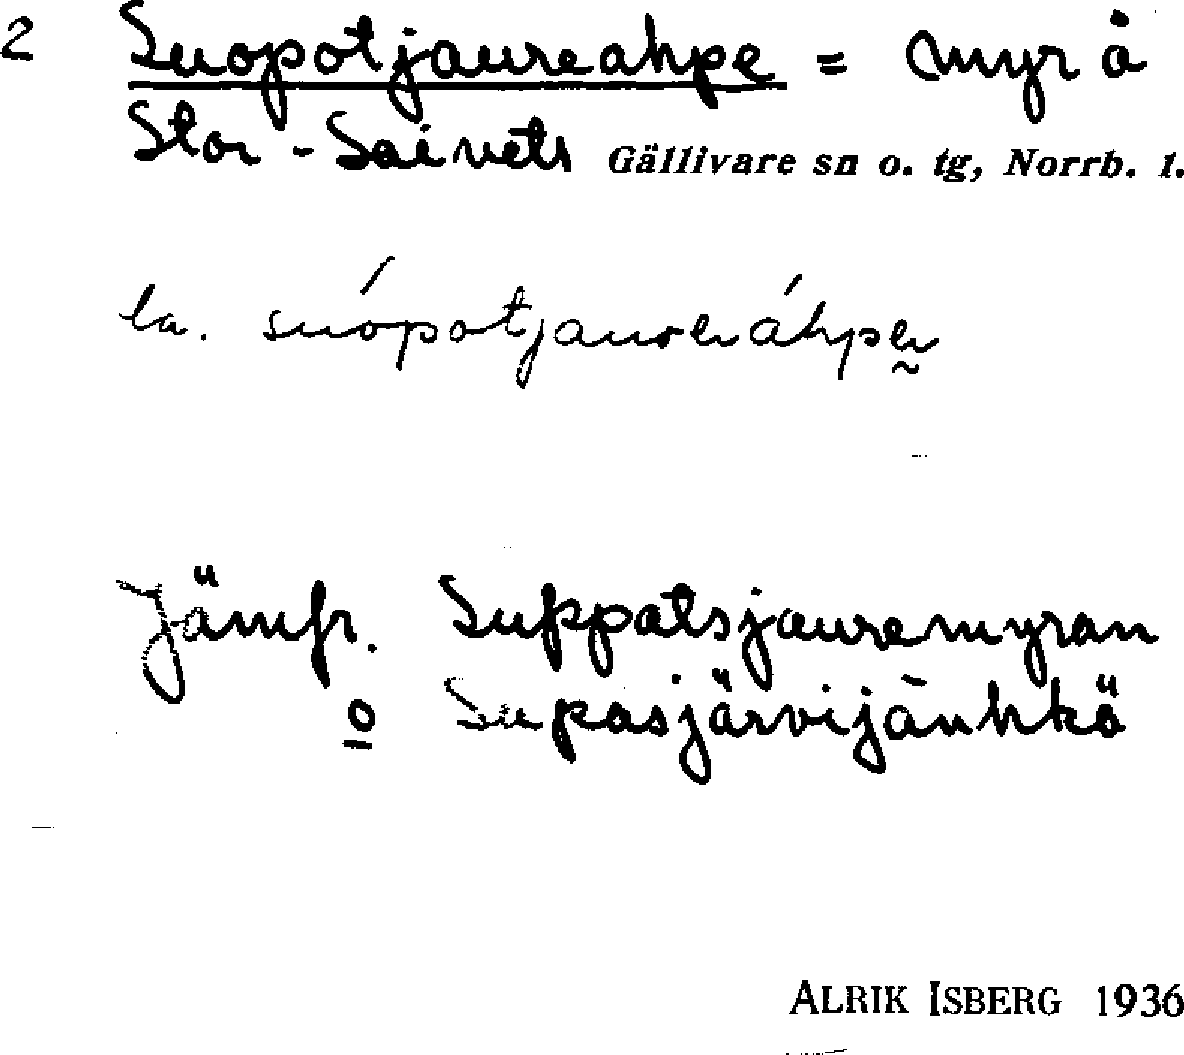 2 Suopotjaureahpe = myr å
Stor-Saivets Gällivare sn o. tg, Norrb. l.
la. suópotjaureiáhpei
Jämfr. Suppatsjauremyran
o Supasjärvijänhkä
ALRIK ISBERG 1936